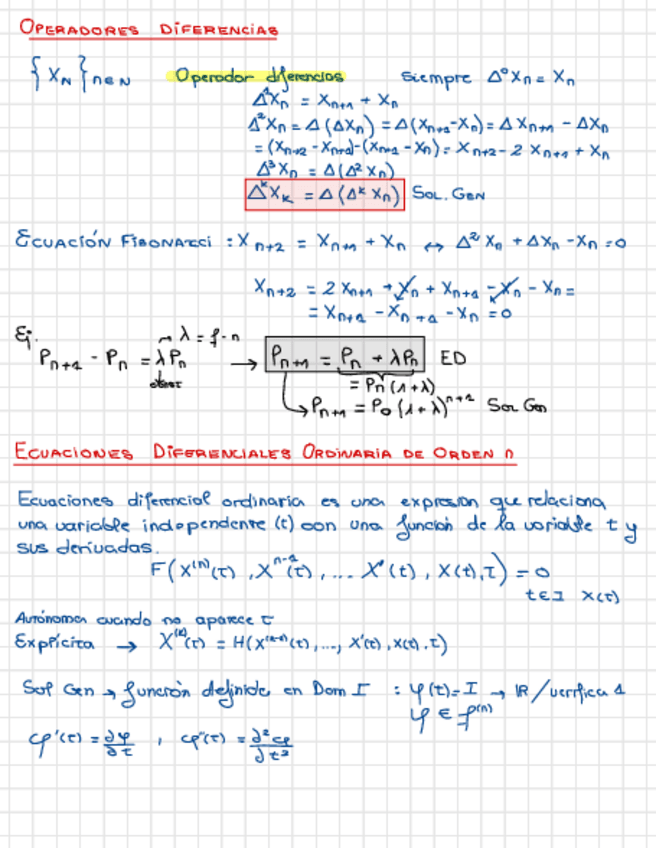 OPERADORES DIFERENCIAS
{X_N}_{n∈N} Operador diferencias Siempre Δ⁰Xn = Xn
Δ¹Xn = Xn+1 + Xn
Δ²Xn = Δ(ΔXn) = Δ(Xn+1-Xn) = ΔXn+1 - ΔXn
= (Xn+2 - Xn+1)-(Xn+1 - Xn) = Xn+2 - 2 Xn+1 + Xn
Δ³Xn = Δ(Δ²Xn)
ΔᵏXₖ = Δ(Δᵏ Xn) SOL. GEN
ECUACIÓN FIBONACCI : Xn+2 = Xn+1 + Xn ↔ Δ²Xn + ΔXn - Xn = 0
Xn+2 = 2 Xn+1 + Xn + Xn+1 - Xn - Xn =
= Xn+2 - Xn+1 - Xn = 0
Ej. → λ = f - n
Pn+1 - Pn = λPn → Pn+1 = Pn + λPn ED
= Pn(1+λ)
Pn+1 = P0(1+λ)ⁿ⁺¹ Sol Gen
ECUACIONES DIFERENCIALES ORDINARIA DE ORDEN n
Ecuaciones diferencial ordinaria es una expresion que relaciona
una variable independente (t) con una función de la variable t y
sus derivadas.
F(X⁽ⁿ⁾(t), Xⁿ⁻¹(t), ... X'(t), X(t), t) = 0
t ∈ I X(t)
Autónoma cuando no aparece t
Explícita → X⁽ᵏ⁾(t) = H(X⁽ᵏ⁻¹⁾(t), ..., X'(t), X(t), t)
Sol Gen → función definida en Dom I : φ(t) = I → IR / verifica 1
φ'(t) = ∂φ/∂t , φ''(t) = ∂²φ/∂t²